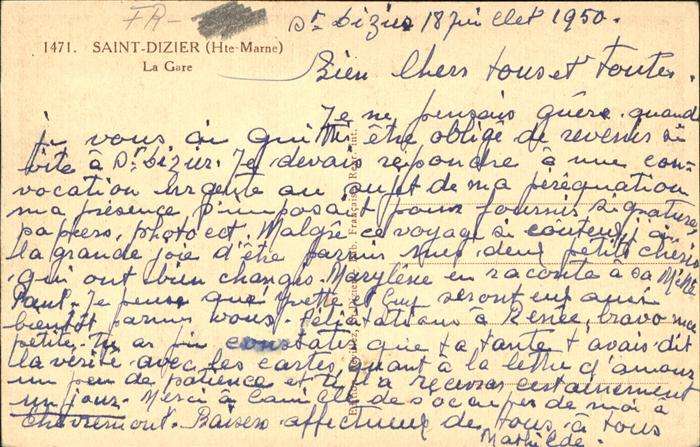 FR-
St Dizier 18 juillet 1950.
1471. SAINT-DIZIER (Hte-Marne)
La Gare
Bien Chers tous et toutes.
Je ne pensais guère quand
je vous ai quittés être obligé de revenir si
vite à St Dizier. Je devais répondre à une con-
vocation urgente au sujet de ma péréquation
ma présence s'imposait pour fournir signatures
papiers, photo ect. Malgré ce voyage si couteux j'ai
la grande joie d'être parmi mes deux petits chéris
qui ont bien changés. Marylène en raconte à sa
Paul. Je pense que Yvette et Guy seront eux aussi
bientôt parmi vous. Félicitations à Renée, bravo ma
petite. Tu as pu constater que ta tante t'avais dit
la vérité avec les cartes, quant à la lettre d'amour
un peu de patience et tu la recevras certainement
un jour. Merci à Camille de s'occuper de moi à
Chèvremont. Baisers affectueux de tous à tous
Mathilde